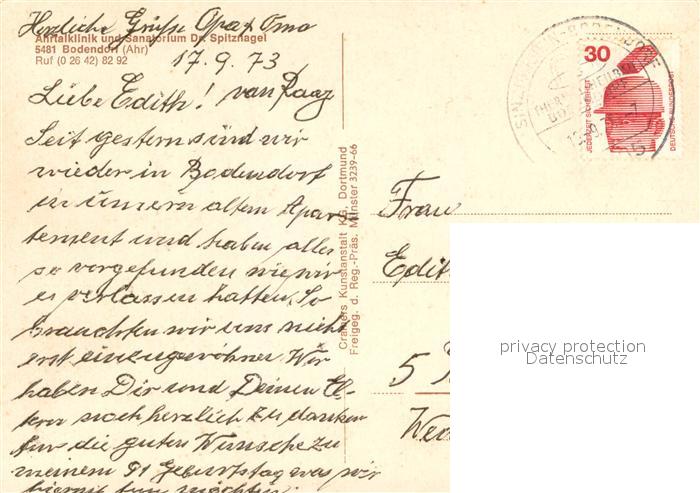 Herzliche Grüsse Opa & Oma
Ahrtalklinik und Sanatorium Dr. Spitznagel
5481 Bodendorf (Ahr)
Ruf (0 26 42) 82 92
17. 9. 73
van Raay
Liebe Edith!
Seit gestern sind wir
wieder in Bodendorf
in unserm alten Apar-
tement und haben alles
so vorgefunden wie wir
es verlassen hatten. So
brauchten wir uns nicht
erst einzugewöhnen. Wir
haben Dir und Deinen El-
tern noch herzlich zu danken
für die guten Wünsche zu
meinem 91 Geburtstag was wir
hiermit tun möchten.
Cramers Kunstanstalt KG, Dortmund
Freigeg. d. Reg.-Präs. Münster 3239-66
30
JEDERZEIT SICHERHEIT
DEUTSCHE BUNDESPOST
Frau
Edith
5
privacy protection
Datenschutz